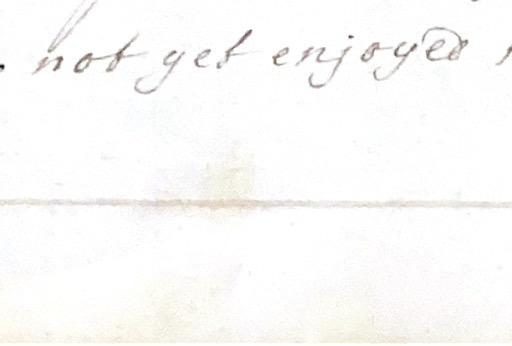 not yet enjoyed